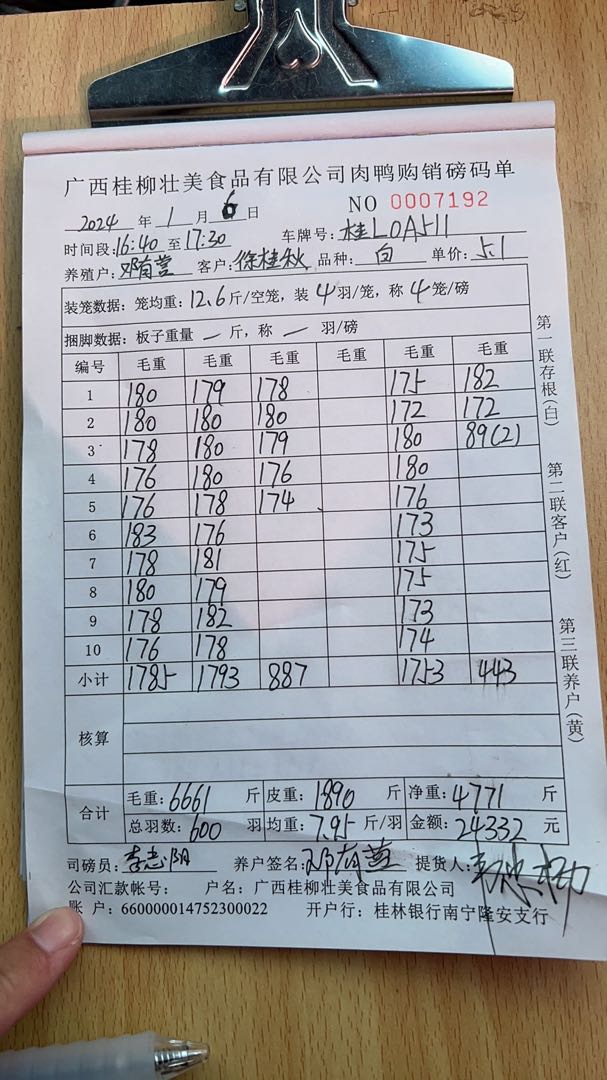 广西桂柳壮美食品有限公司肉鸭购销磅码单
NO 0007192
2024 年 1 月 6 日
时间段:16:40 至 17:30 车牌号: 桂L0A511
养殖户: 邓有营 客户: 徐桂秋 品种: 白 单价: 5.1
装笼数据: 笼均重: 12.6 斤/空笼, 装 4 羽/笼, 称 4 笼/磅
捆脚数据: 板子重量 — 斤, 称 — 羽/磅
编号 毛重 毛重 毛重 毛重 毛重 毛重
1 180 179 178 175 182
2 180 180 180 172 172
3 178 180 179 180 89(2)
4 176 180 176 180
5 176 178 174 176
6 183 176 173
7 178 181 175
8 180 179 175
9 178 182 173
10 176 178 174
小计 1785 1793 887 1753 443
核算
合计 毛重: 6661 斤 皮重: 1890 斤 净重: 4771 斤
总羽数: 600 羽 均重: 7.95 斤/羽 金额: 24332 元
司磅员: 李志阴 养户签名: 邓有营 提货人:
公司汇款帐号: 户名: 广西桂柳壮美食品有限公司
账 户: 660000014752300022 开户行: 桂林银行南宁隆安支行
第一联存根(白)
第二联客户(红)
第三联养户(黄)